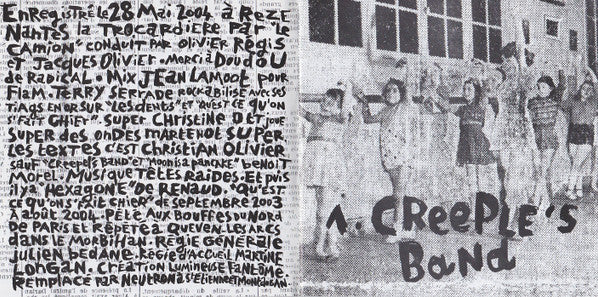 ENREGISTRÉ LE 28 MAI 2004 À REZE
NANTES LA TROCARDIERE PAR "LE
CAMION" CONDUIT PAR OLIVIER REGIS
ET JACQUES OLIVIER. MERCI À DOUDOU
DE RADICAL. MIX JEAN LAMOOT POUR
FLAM. TERRY SERVADE ROCKABILISE AVEC SES
TIAGS EN OR SUR "LES DENTS" ET "QU'EST CE QU'ON
S'FAIT CHIER". SUPER CHRISTINE OTT JOUE
SUPER DES ONDES MARTENOT SUPER
LES TEXTES C'EST CHRISTIAN OLIVIER
SAUF "CREEPLE'S BAND" ET "MOON IS A PANCAKE" BENOIT
MOREL. MUSIQUE TÊTES RAIDES. ET PUIS
IL Y A "HEXAGONE" DE RENAUD. "QU'EST
CE QU'ON S'FAIT CHIER" DE SEPTEMBRE 2003
À AOÛT 2004. PÈTE AUX BOUFFES DU NORD
DE PARIS ET RÉPÈTE À QUEVEN-LES ARCS
DANS LE MORBIHAN. RÉGIE GÉNÉRALE
JULIEN BEDANE. RÉGIE D'ACCUEIL MARTINE
LONGAN. CRÉATION LUMINEUSE FANTÔME
REMPLACÉ PAR NEUTRON À ST ETIENNE ET MONTAUBAN.
1. CREEPLE'S
BAND